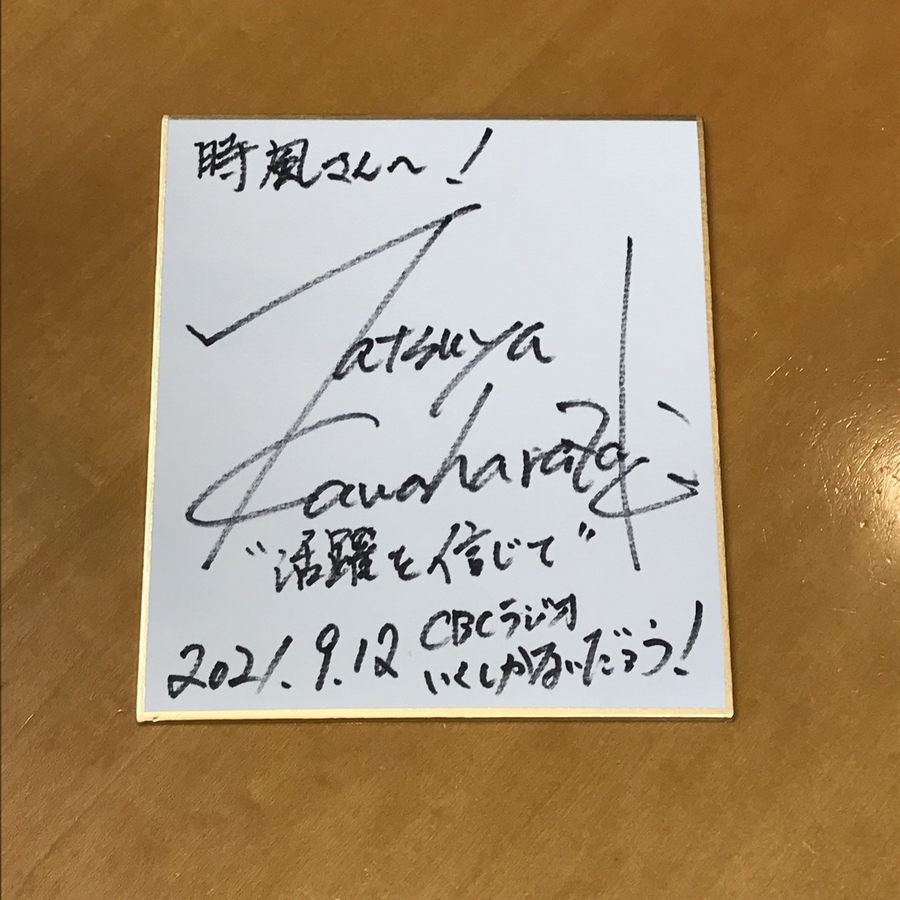 時風さんへ!
Tatsuya
Kawaharazaki
"活躍を信じて"
2021.9.12
CBCラジオ
いくしかないだろう!